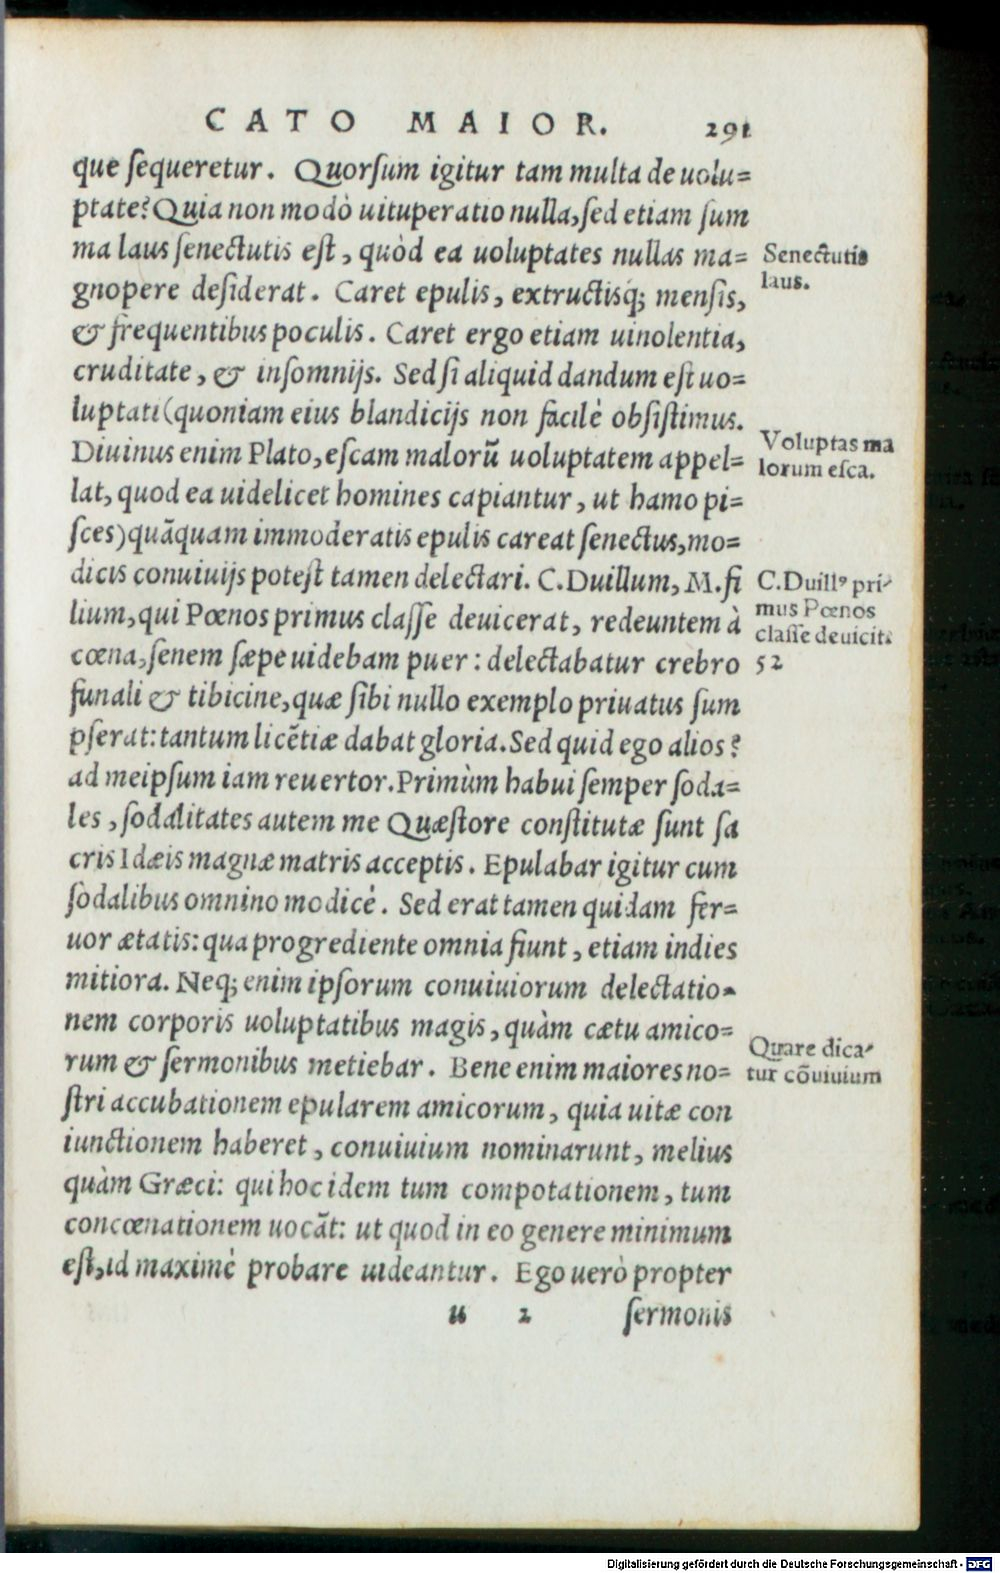 CATO MAIOR. 291
que ſequeretur. Quorſum igitur tam multa de uolu=
ptate? Quia non modò uituperatio nulla, ſed etiam ſum
ma laus ſenectutis eſt, quòd ea uoluptates nullas ma=
Senectutis
gnopere deſiderat. Caret epulis, extructisq; menſis,
laus.
& frequentibus poculis. Caret ergo etiam uinolentia,
cruditate, & inſomnijs. Sed ſi aliquid dandum eſt uo=
luptati (quoniam eius blandicijs non facilè obſiſtimus.
Diuinus enim Plato, eſcam malorũ uoluptatem appel=
Voluptas ma
lorum eſca.
lat, quod ea uidelicet homines capiantur, ut hamo pi=
ſces) quãquam immoderatis epulis careat ſenectus, mo=
dicis conuiuijs poteſt tamen delectari. C. Duillum, M. fi
C. Duillꝰ pri-
lium, qui Pœnos primus claſſe deuicerat, redeuntem à
mus Pœnos
claſſe deuicit.
cœna, ſenem ſæpe uidebam puer: delectabatur crebro
52
funali & tibicine, quæ ſibi nullo exemplo priuatus ſum
pſerat: tantum licẽtiæ dabat gloria. Sed quid ego alios?
ad meipſum iam reuertor. Primùm habui ſemper ſoda=
les, ſodalitates autem me Quæſtore conſtitutæ ſunt ſa
cris Idæis magnæ matris acceptis. Epulabar igitur cum
ſodalibus omnino modicè. Sed erat tamen quidam fer=
uor ætatis: qua progrediente omnia fiunt, etiam indies
mitiora. Neq; enim ipſorum conuiuiorum delectatio=
nem corporis uoluptatibus magis, quàm cætu amico=
Quare dica-
rum & ſermonibus metiebar. Bene enim maiores no=
tur cõuiuium
ſtri accubationem epularem amicorum, quia uitæ con
iunctionem haberet, conuiuium nominarunt, melius
quàm Græci: qui hoc idem tum compotationem, tum
concœnationem uocãt: ut quod in eo genere minimum
eſt, id maximè probare uideantur. Ego uerò propter
u 2 ſermonis
Digitalisierung gefördert durch die Deutsche Forschungsgemeinschaft - DFG